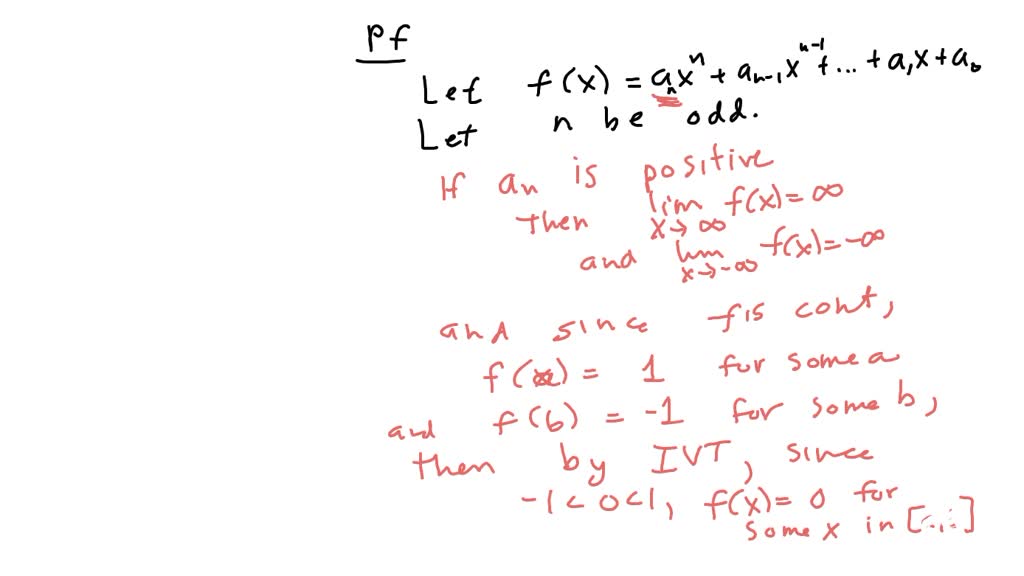 Pf
Let f(x) = aₙxⁿ + aₙ₋₁xⁿ⁻¹ + ... + a₁x + a₀
Let n be odd.
If aₙ is positive
then lim x→∞ f(x) = ∞
and lim x→-∞ f(x) = -∞
and since f is cont,
f(a) = 1 for some a
and f(b) = -1 for some b,
then by IVT, since
-1 < 0 < 1, f(x) = 0 for
some x in [ ]